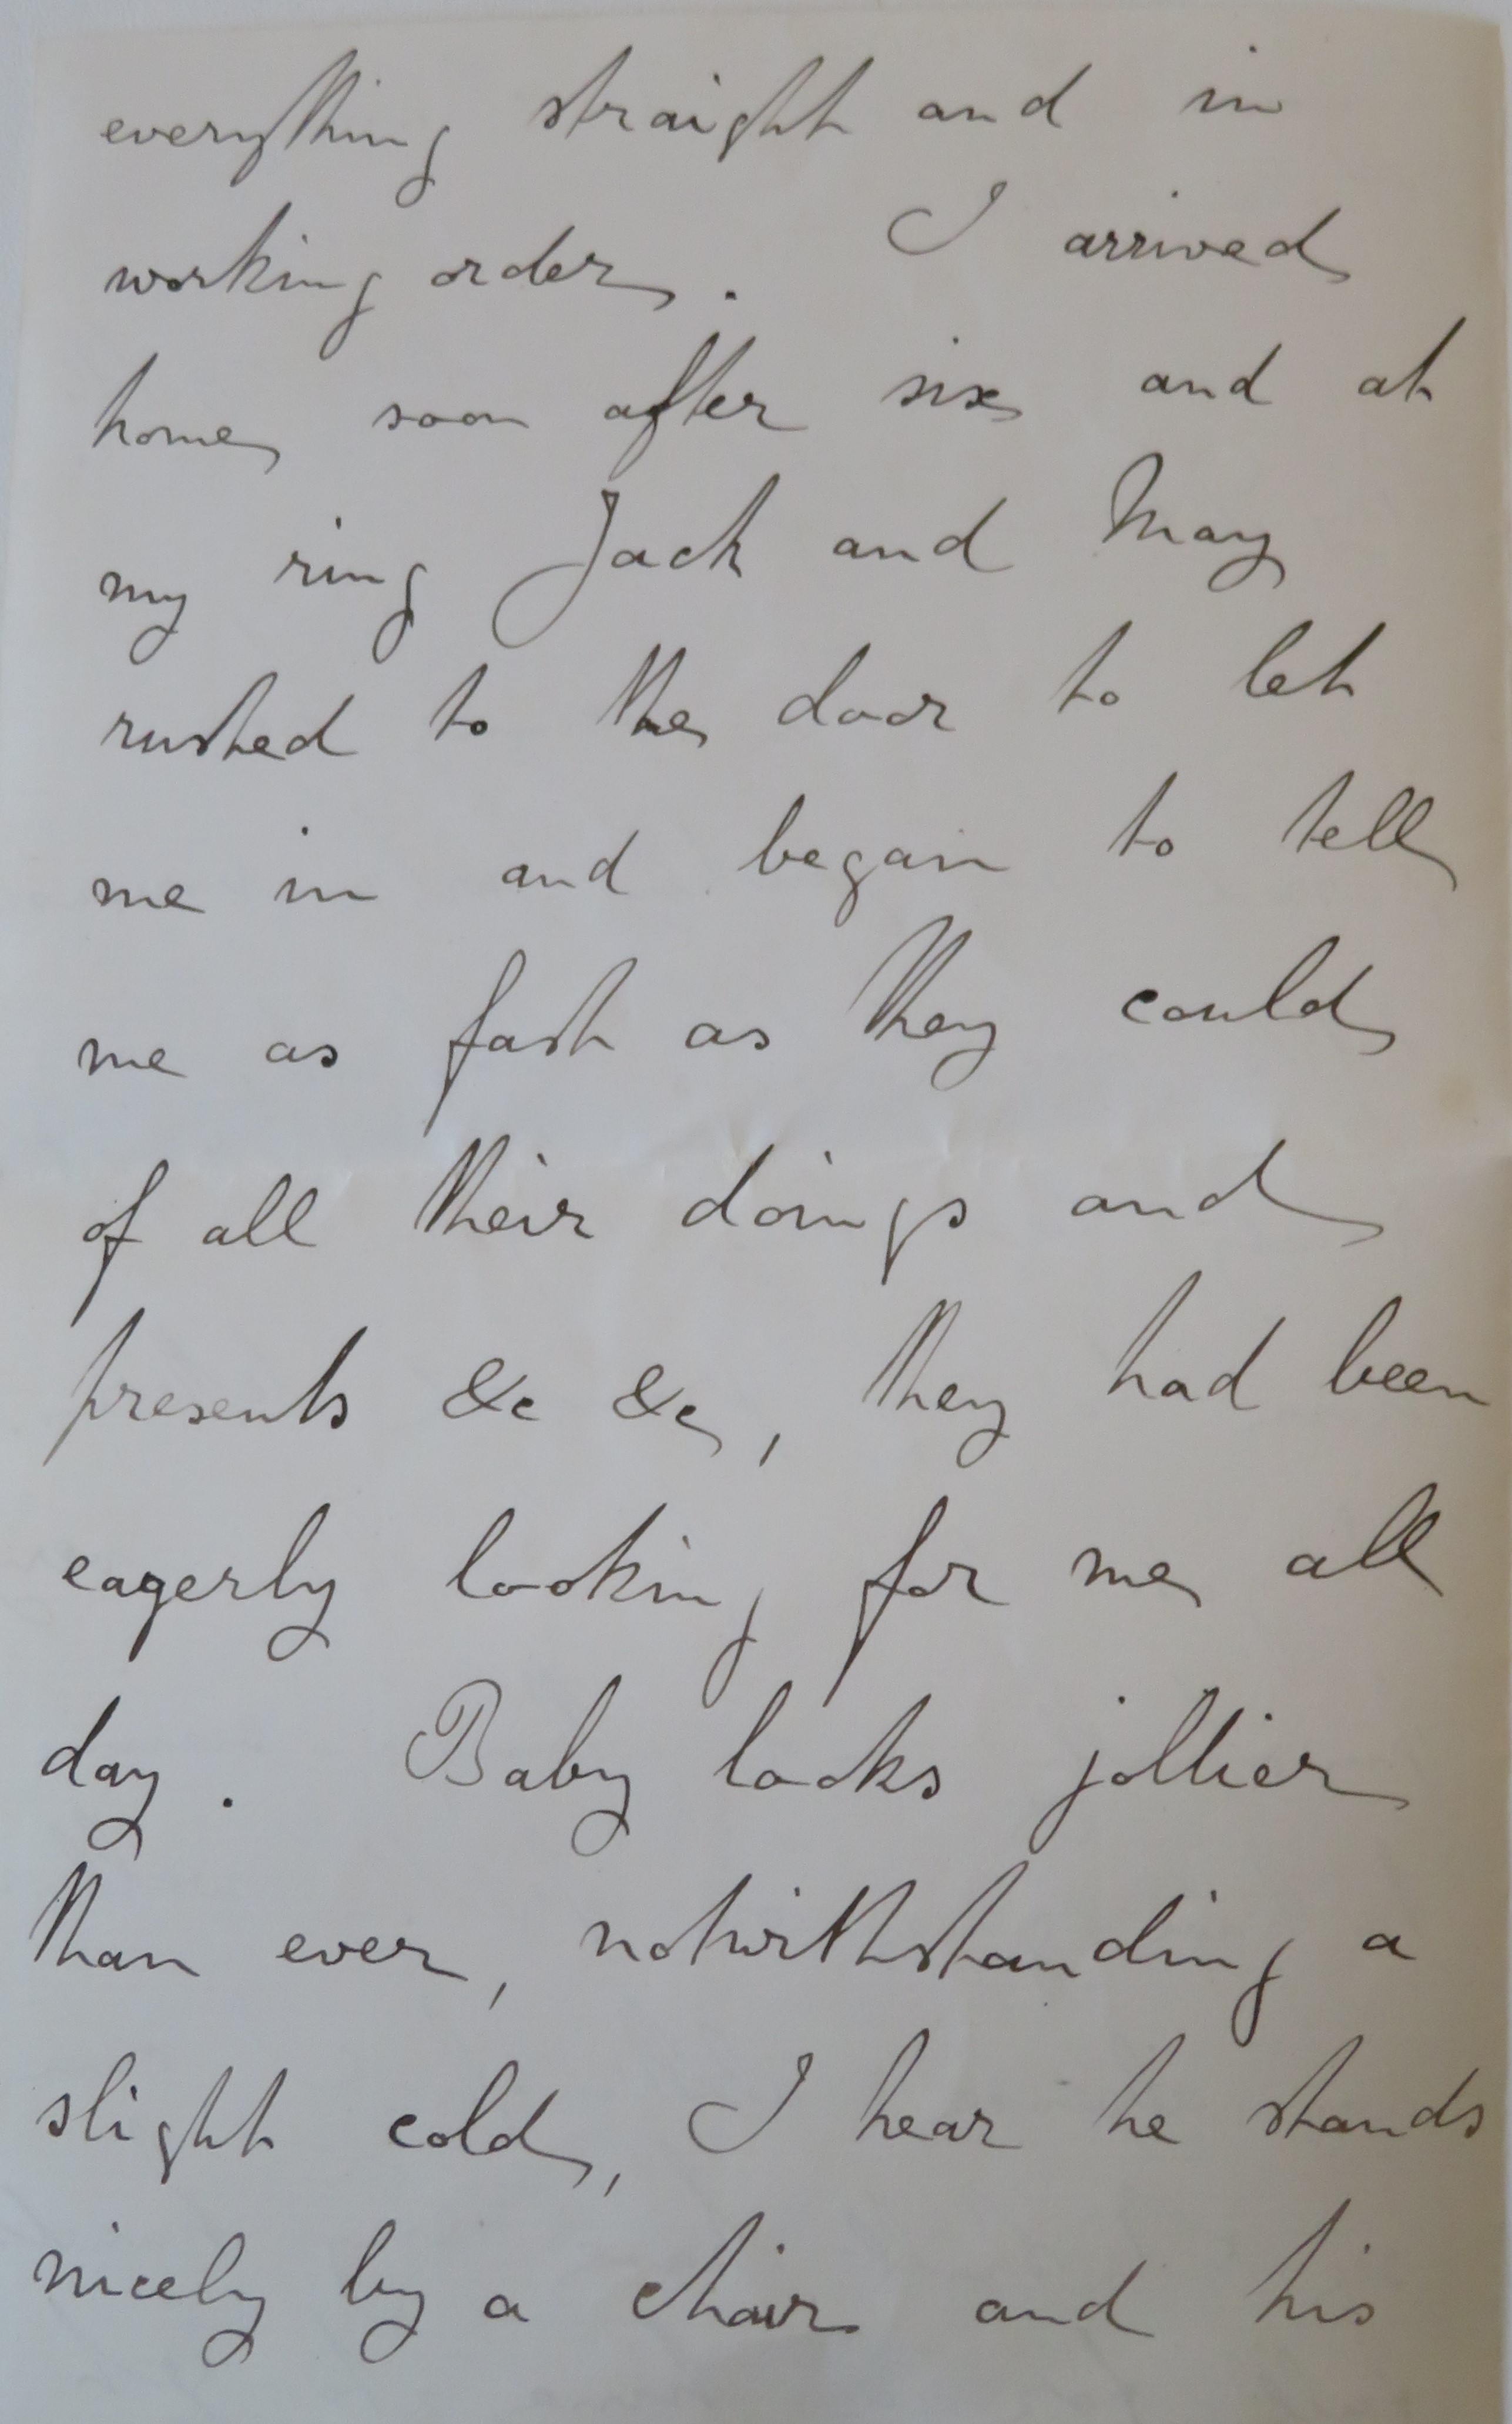 everything straight and in
working order. I arrived
home soon after six and at
my ring Jack and May
rushed to the door to let
me in and began to tell
me as fast as they could
of all their doings and
presents &c &c, they had been
eagerly looking for me all
day. Baby looks jollier
than ever, notwithstanding a
slight cold, I hear he stands
nicely by a chair and his